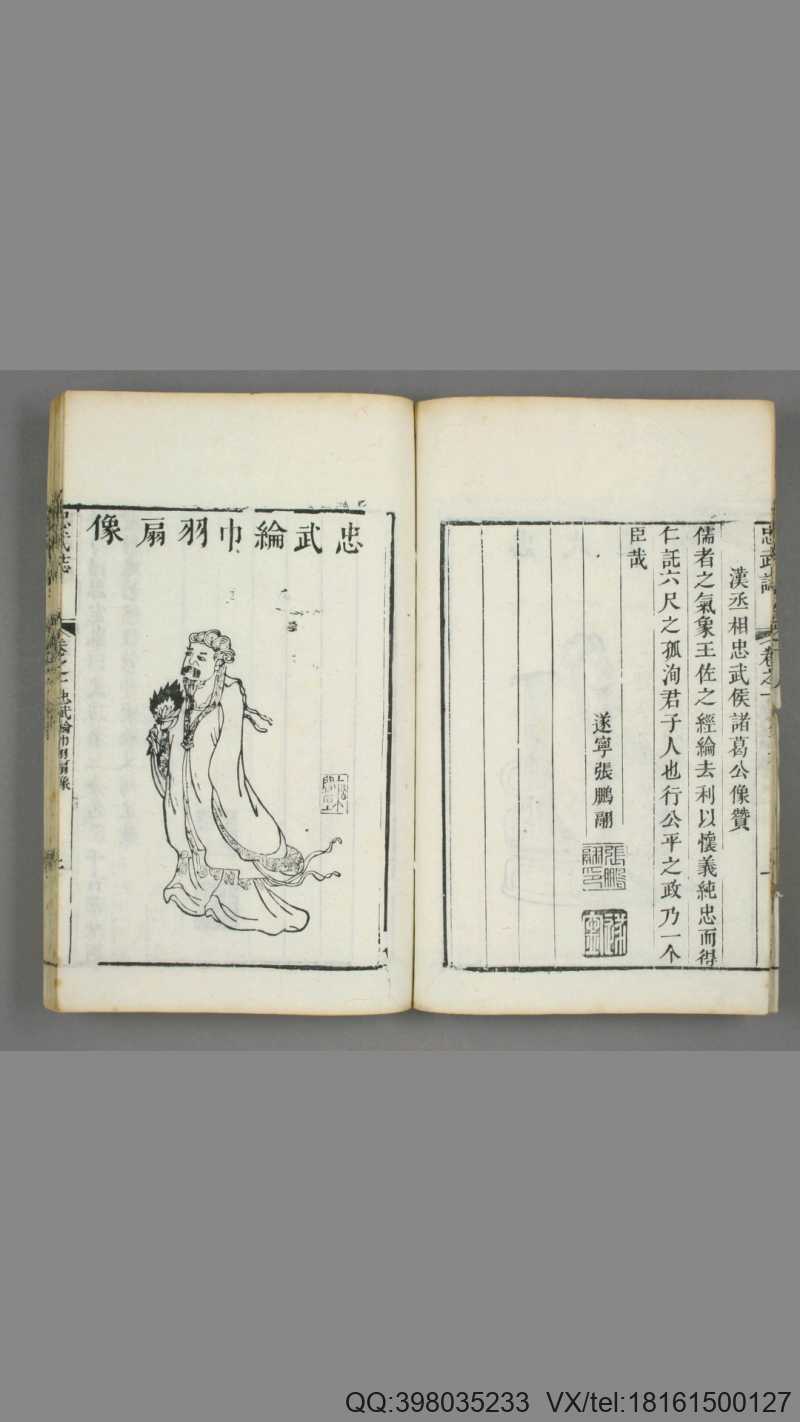 忠武誌
卷之一
漢丞相忠武侯諸葛公像贊
儒者之氣象王佐之經綸去利以懷義純忠而得
仁託六尺之孤洵君子人也行公平之政乃一个
臣哉
遂寧張鵬翮
張鵬
翮印
忠武綸巾羽扇像
忠武誌
卷之一
忠武綸巾羽扇像
QQ:398035233 VX/tel:18161500127